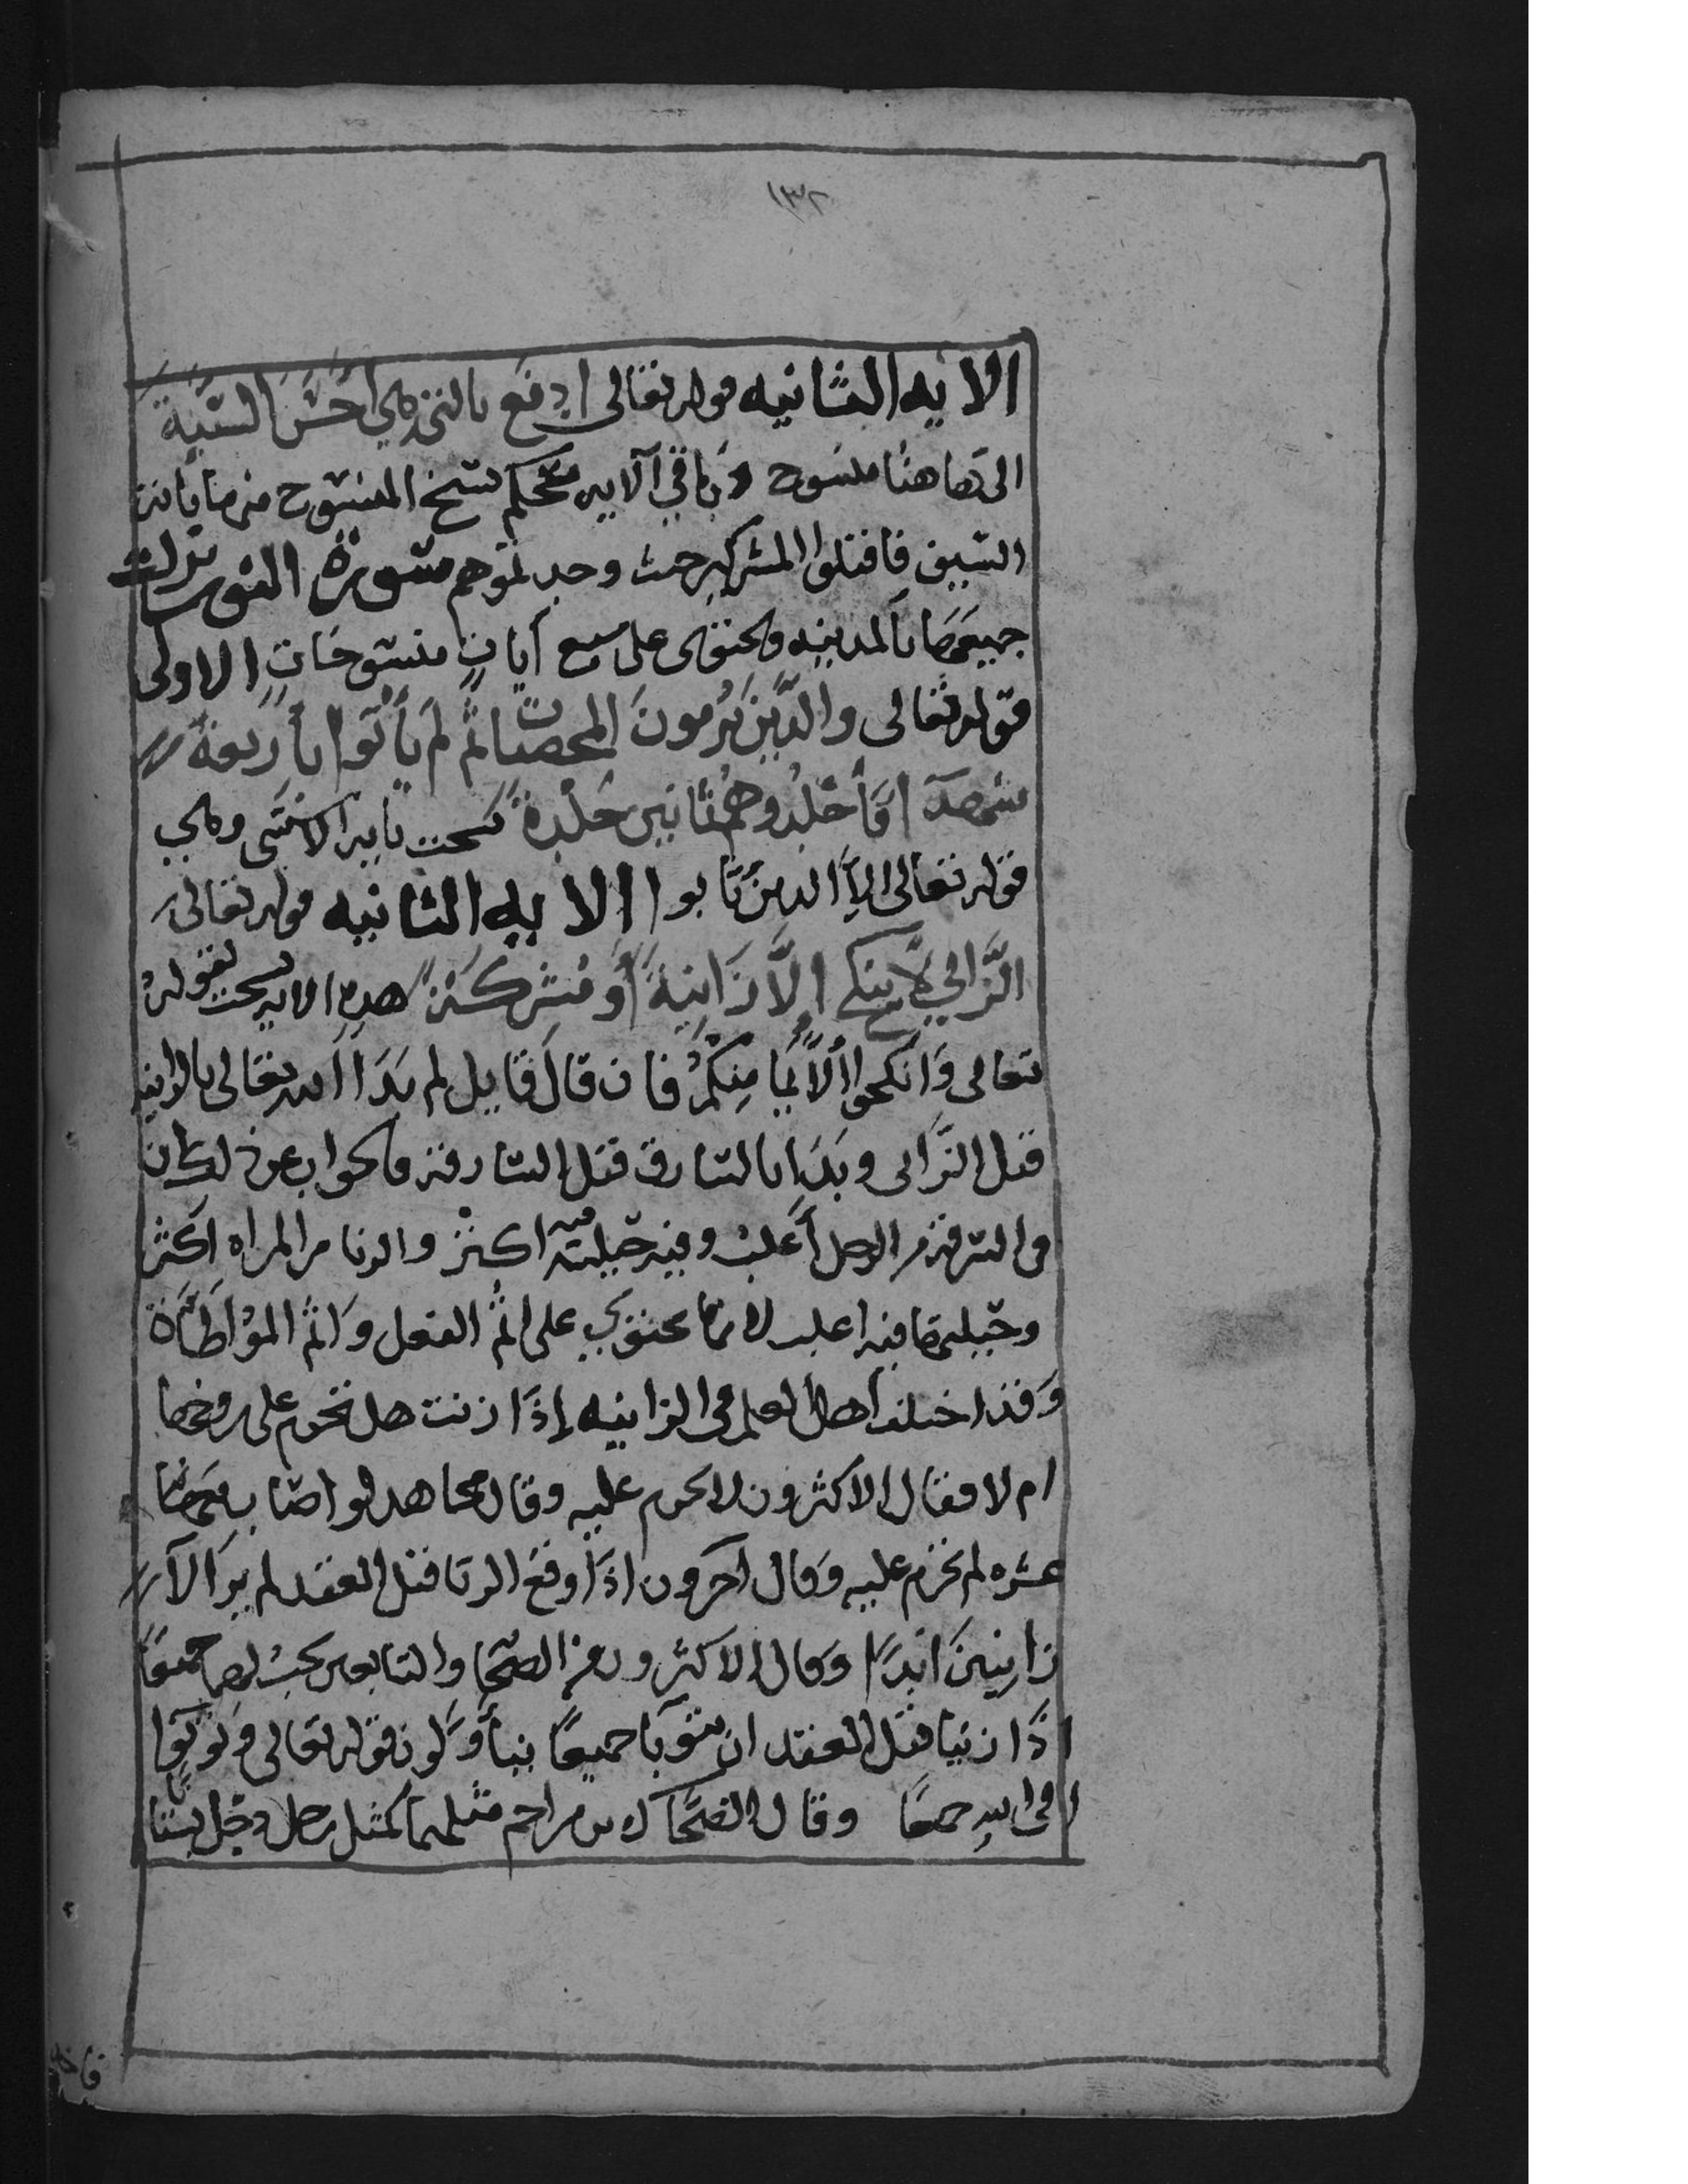 ١٣٢
الايه الثانيه قوله تعالى ادفع بالتي هي احسن السيئة
الى هاهنا منسوخ وباقي الآيه محكم نسخ المنسوخ منها بآية
السيف فاقتلوا المشركين حيث وجدتموهم سورة النور نزلت
جميعها بالمدينه وتحتوى على سبع آيات منسوخات الاولى
قوله تعالى والذين يرمون المحصنات ثم لم يأتوا بأربعة
شهدآ فأجلدوهم ثمانين جلدة نسخت بايه الاستثنى وهي
قوله تعالى إلا الذين تابوا الايه الثانيه قوله تعالى
الزاني لا ينكح إلا زانية أو مشركة هذه الايه نسخت بقوله
تعالى وانكحوا الأيامى منكم فان قال قايل لم بدأ الله تعالى بالزانيه
قبل الزانى وبدأ بالسارق قبل السارقة فالجواب عن ذلك ان
فى السرقة من الرجل أغلب وفيه حيلته فيه اكثر والزنا من المراه اكثر
وحيلتها فيه اغلب لانها تحتوي على إثم الفعل وإثم المؤاطأة
وقد اختلف أهل العلم فى الزانيه إذا زنت هل تحرم على زوجها
ام لا فقال الاكثرون لا تحرم عليه وقال مجاهد لو اصاب معها
عشره لم تحرم عليه وقال آخرون اذا وقع الزنا قبل العقد لم يزالآ
زانيين ابدا وقال الاكثرون من الصحابة والتابعين يجب لهما جميعا
إذا زنيا قبل العقد ان يتوبا جميعا لقوله تعالى وتوبوا
الى الله جميعا وقال الضحاك بن مزاحم مثلهما كمثل رجل دخل بستانا